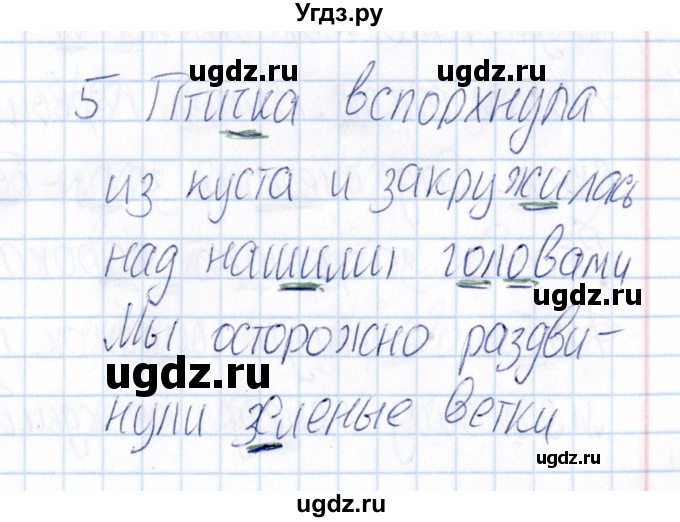 Угдз.ру
ugdz.ru ugdz.ru
5 Птичка вспорхнула
из куста и закружилась
над нашими головами
ugdz.ru
Мы осторожно раздви-
ugdz.ru
нули зеленые ветки
ugdz.ru ugdz.ru
ugdz.ru